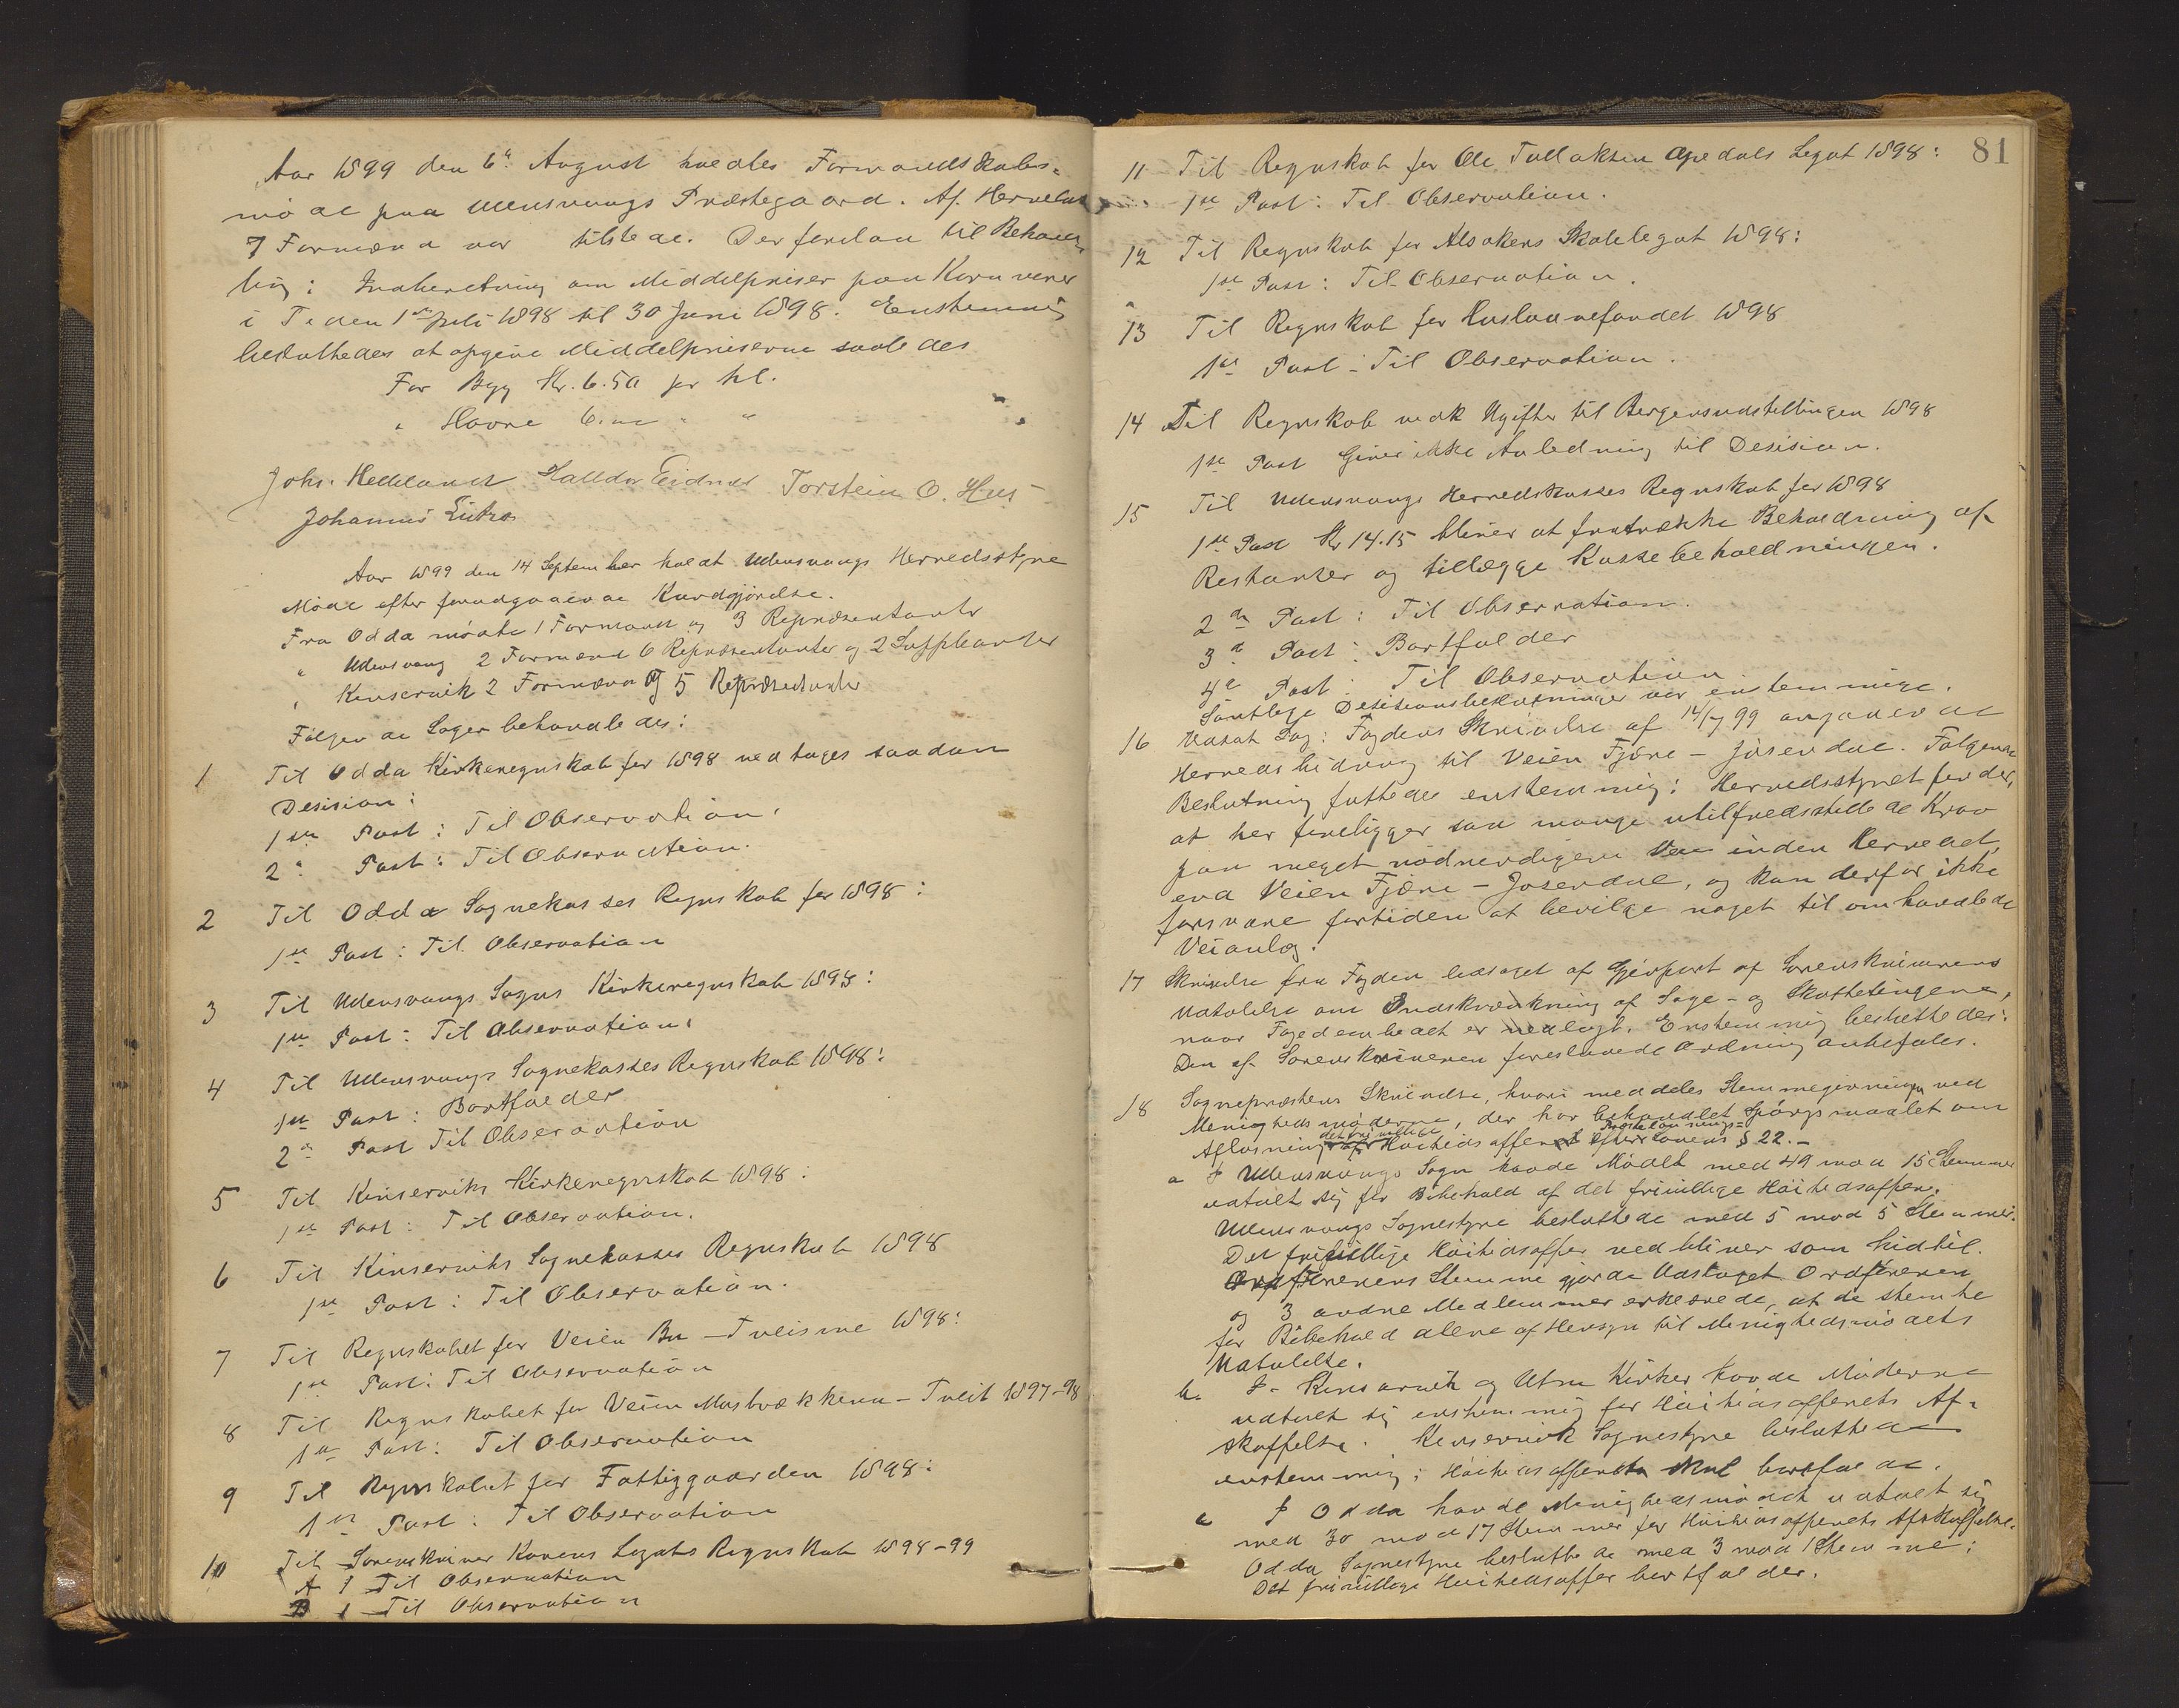 Aar 1899 den 6te August holdtes Formandskabs-
møde paa Ullensvangs Præstegaard. Af Herredets
7 Formænd var tilstede. Der forelaa til Behand-
ling: Indberetning om Middelpriser paa Kornvarer
i Tiden 1ste Juli 1898 til 30 Juni 1898. Enstemmig
besluttedes at opgive Middelpriserne saaledes
For Byg Kr. 6.50 pr hl.
" Havre 6.00 " "
Johs. Helleland Halldor Eidnes Torstein O. Hus
Johannes Eitro
Aar 1899 den 14 September holdt Ullensvangs Herredsstyre
Møde efter forudgaaende Kundgjørelse.
Fra Odda mødte 1 Formand og 3 Repræsentanter
" Ullensvang 2 Formænd 6 Repræsentanter og 2 Suppleanter
" Kinservik 2 Formænd og 5 Repræsentanter
Følgende Sager behandledes:
1 Til Odda Kirkeregnskab for 1898 vedtages saadan
Desision:
1ste Post: Til Observation.
2den Post: Til Observation.
2 Til Odda Sognekasses Regnskab for 1898:
1ste Post: Til Observation
3 Til Ullensvangs Sogns Kirkeregnskab 1898:
1ste Post: Til Observation.
4 Til Ullensvangs Sognekasses Regnskab 1898:
1ste Post: Bortfalder
2den Post Til Observation
5 Til Kinserviks Kirkeregnskab 1898:
1ste Post: Til Observation.
6 Til Kinserviks Sognekasses Regnskab 1898
1ste Post: Til Observation.
7 Til Regnskabet for Veien Bu - Tveisme 1898:
1ste Post: Til Observation
8 Til Regnskabet for Veien Mosbrækkene - Tveit 1897-98
1ste Post: Til Observation
9 Til Regnskabet for Fattiggaarden 1898:
1ste Post: Til Observation
10 Til Sorenskriver Korens Legats Regnskab 1898-99
A 1 Til Observation
B 1 Til Observation
81
11 Til Regnskab for Ole Tollaksen Apedals Legat 1898:
1ste Post: Til Observation.
12 Til Regnskab for Alsakers Skolelegat 1898:
1ste Post: Til Observation.
13 Til Regnskab for Huslaanefondet 1898
1ste Post: Til Observation.
14 Til Regnskab vedk Utgifter til Bergensudstillingen 1898
1ste Post Giver ikke Anledning til Desision.
15 Til Ullensvangs Herredskasses Regnskab for 1898
1ste Post Kr 14.15 bliver at fratrække Beholdning af
Restanser og tillægge Kassebeholdningen.
2den Post: Til Observation.
3de Post: Bortfalder
4de Post: Til Observation
Samtlige Desisionsbeslutninger var enstemmige.
16 Udsat Sag: Fogdens Skrivelse af 14/7 99 angaaende
Herredsbidrag til Veien Fjære - Jøsendal. Følgende
Beslutning fattedes enstemmig: Herredsstyret finder,
at her foreligger saa mange utilfredsstillede Krav
paa meget nødvendigere Veie inden Herredet,
end Veien Fjære - Jøsendal, og kan derfor ikke
forsvare fortiden at bevilge noget til omhandlede
Veianlæg.
17 Skrivelse fra Fogden ledsaget af Gjenpart af Sorenskriverens
Udtalelse om Indskrænkning af Sage- og Skattetingene,
naar Fogedembedet er nedlagt. Enstemmig besluttedes:
Den af Sorenskriveren foreslaaede Ordning anbefales.
18 Sogneprestens Skrivelse, hvori meddeles Stemmegivningen ved
Menighedsmøderne, der har behandlet Spørgsmaalet om
Afløsning af det frivillige Høitidsoffer efter Prestelønningslovens § 22.-
a I Ullensvangs Sogn havde Mødet med 49 mod 15 Stemmer
udtalt sig for Bibehold af det frivillige Høitidsoffer.
Ullensvangs Sognestyre besluttede med 5 mod 5 Stemmer:
Det frivillige Høitidsoffer vedbliver som hidtil.
Ordførerens Stemme gjorde Udslaget. Ordføreren
og 3 andre Medlemmer erklærede, at de stemte
for Bibehold alene af Hensyn til Menighedsmødets
Udtalelse.
b. I Kinservik og Utne Kirker havde Møderne
udtalt sig enstemmig for Høitidsofferets Af-
skaffelse. Kinservik Sognestyre besluttede
enstemmig: Høitidsofferet skal bortfalde.
c I Odda havde Menighedsmødet udtalt sig
med 30 mod 17 Stemmer for Høitidsofferets Afskaffelse.
Odda Sognestyre besluttede med 3 mod 1 Stemme:
Det frivillige Høitidsoffer bortfalder.